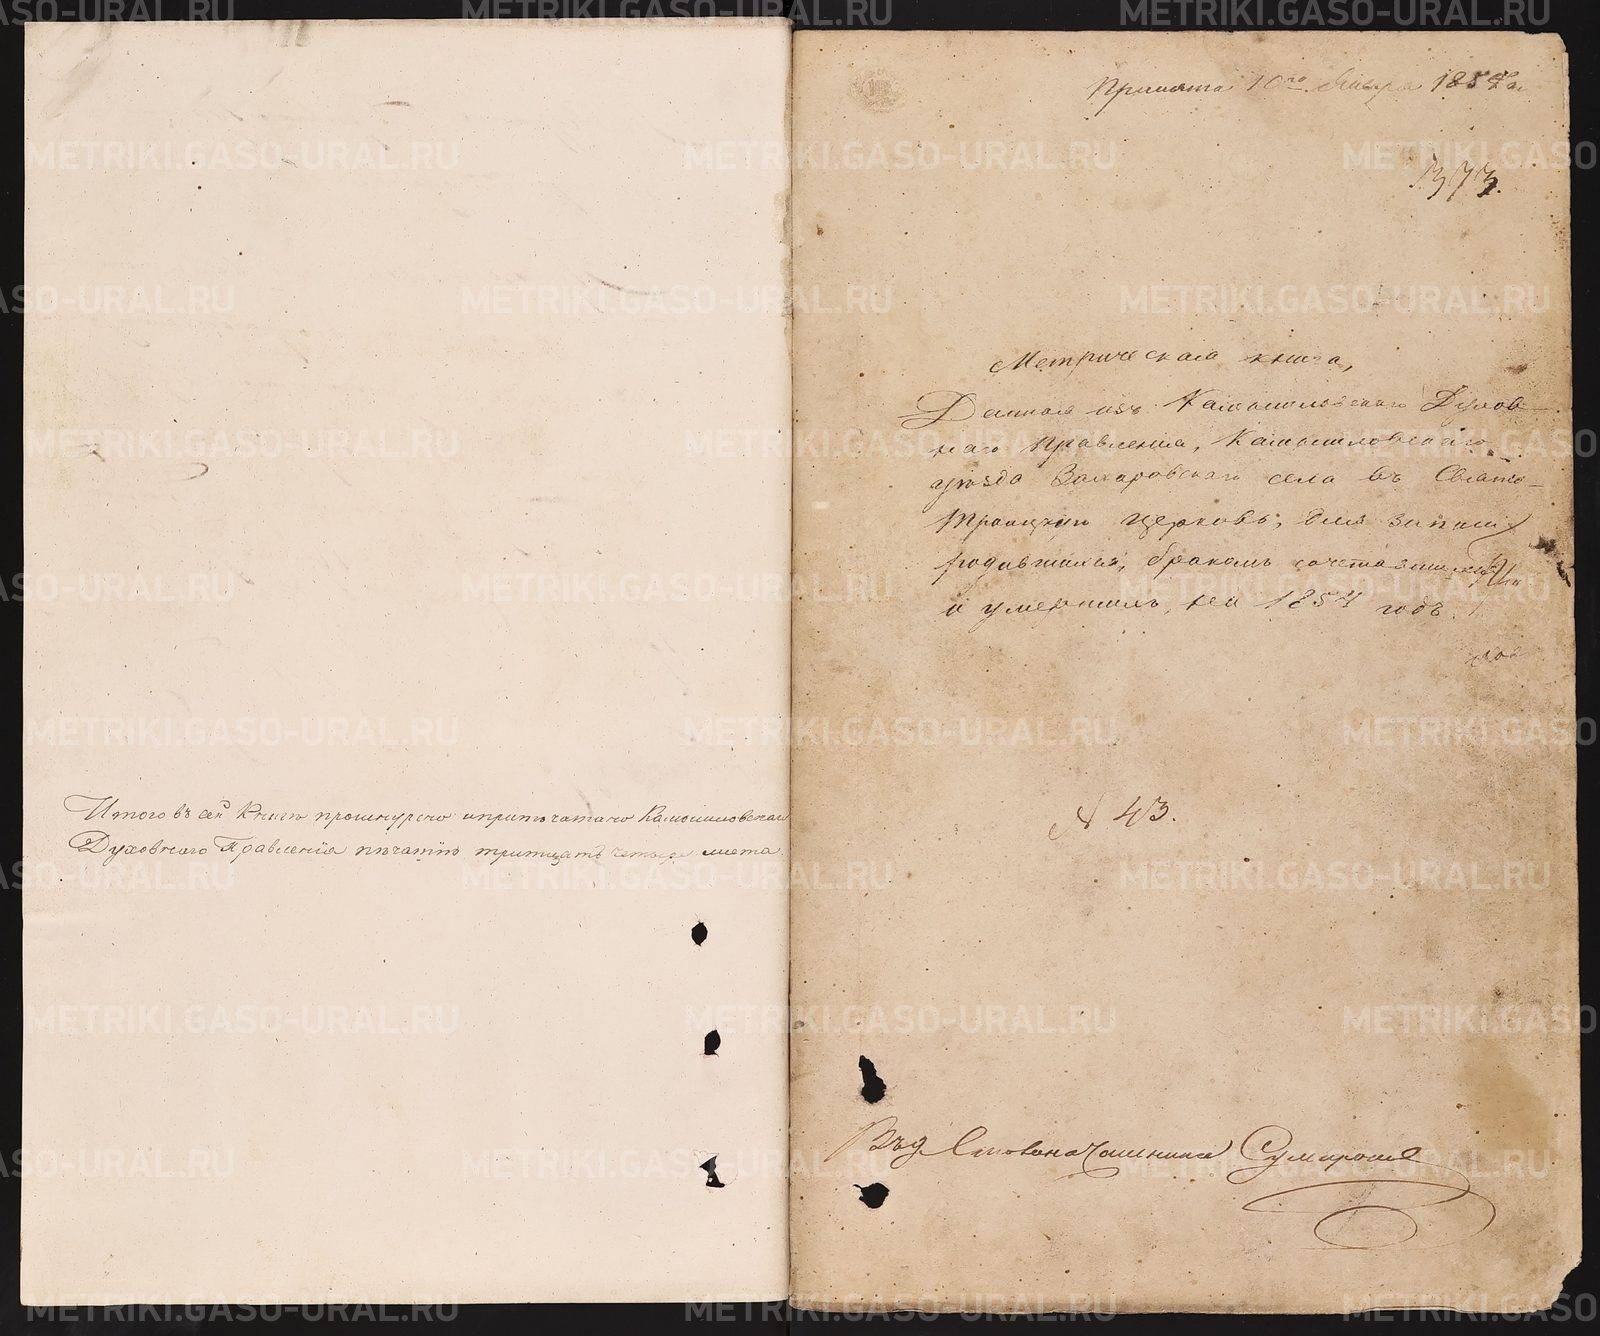 Итого въ сей Книгѣ прошнуровано и припечатано Камышловскаго
Духовнаго Правленія печатію тритцать четыре листа.
Принята 10го Января 1854 г.
373.
Метрическая книга,
Данная изъ Камышловскаго Духов-
наго Правленія, Камышловскаго
уѣзда Захаровскаго села въ Свято-
Троицкую церковь, для записи
родившихся, бракомъ сочетавшихся
и умершихъ, на 1854 годъ.
№ 43.
Столоначальника
METRIKI.GASO-URAL.RU